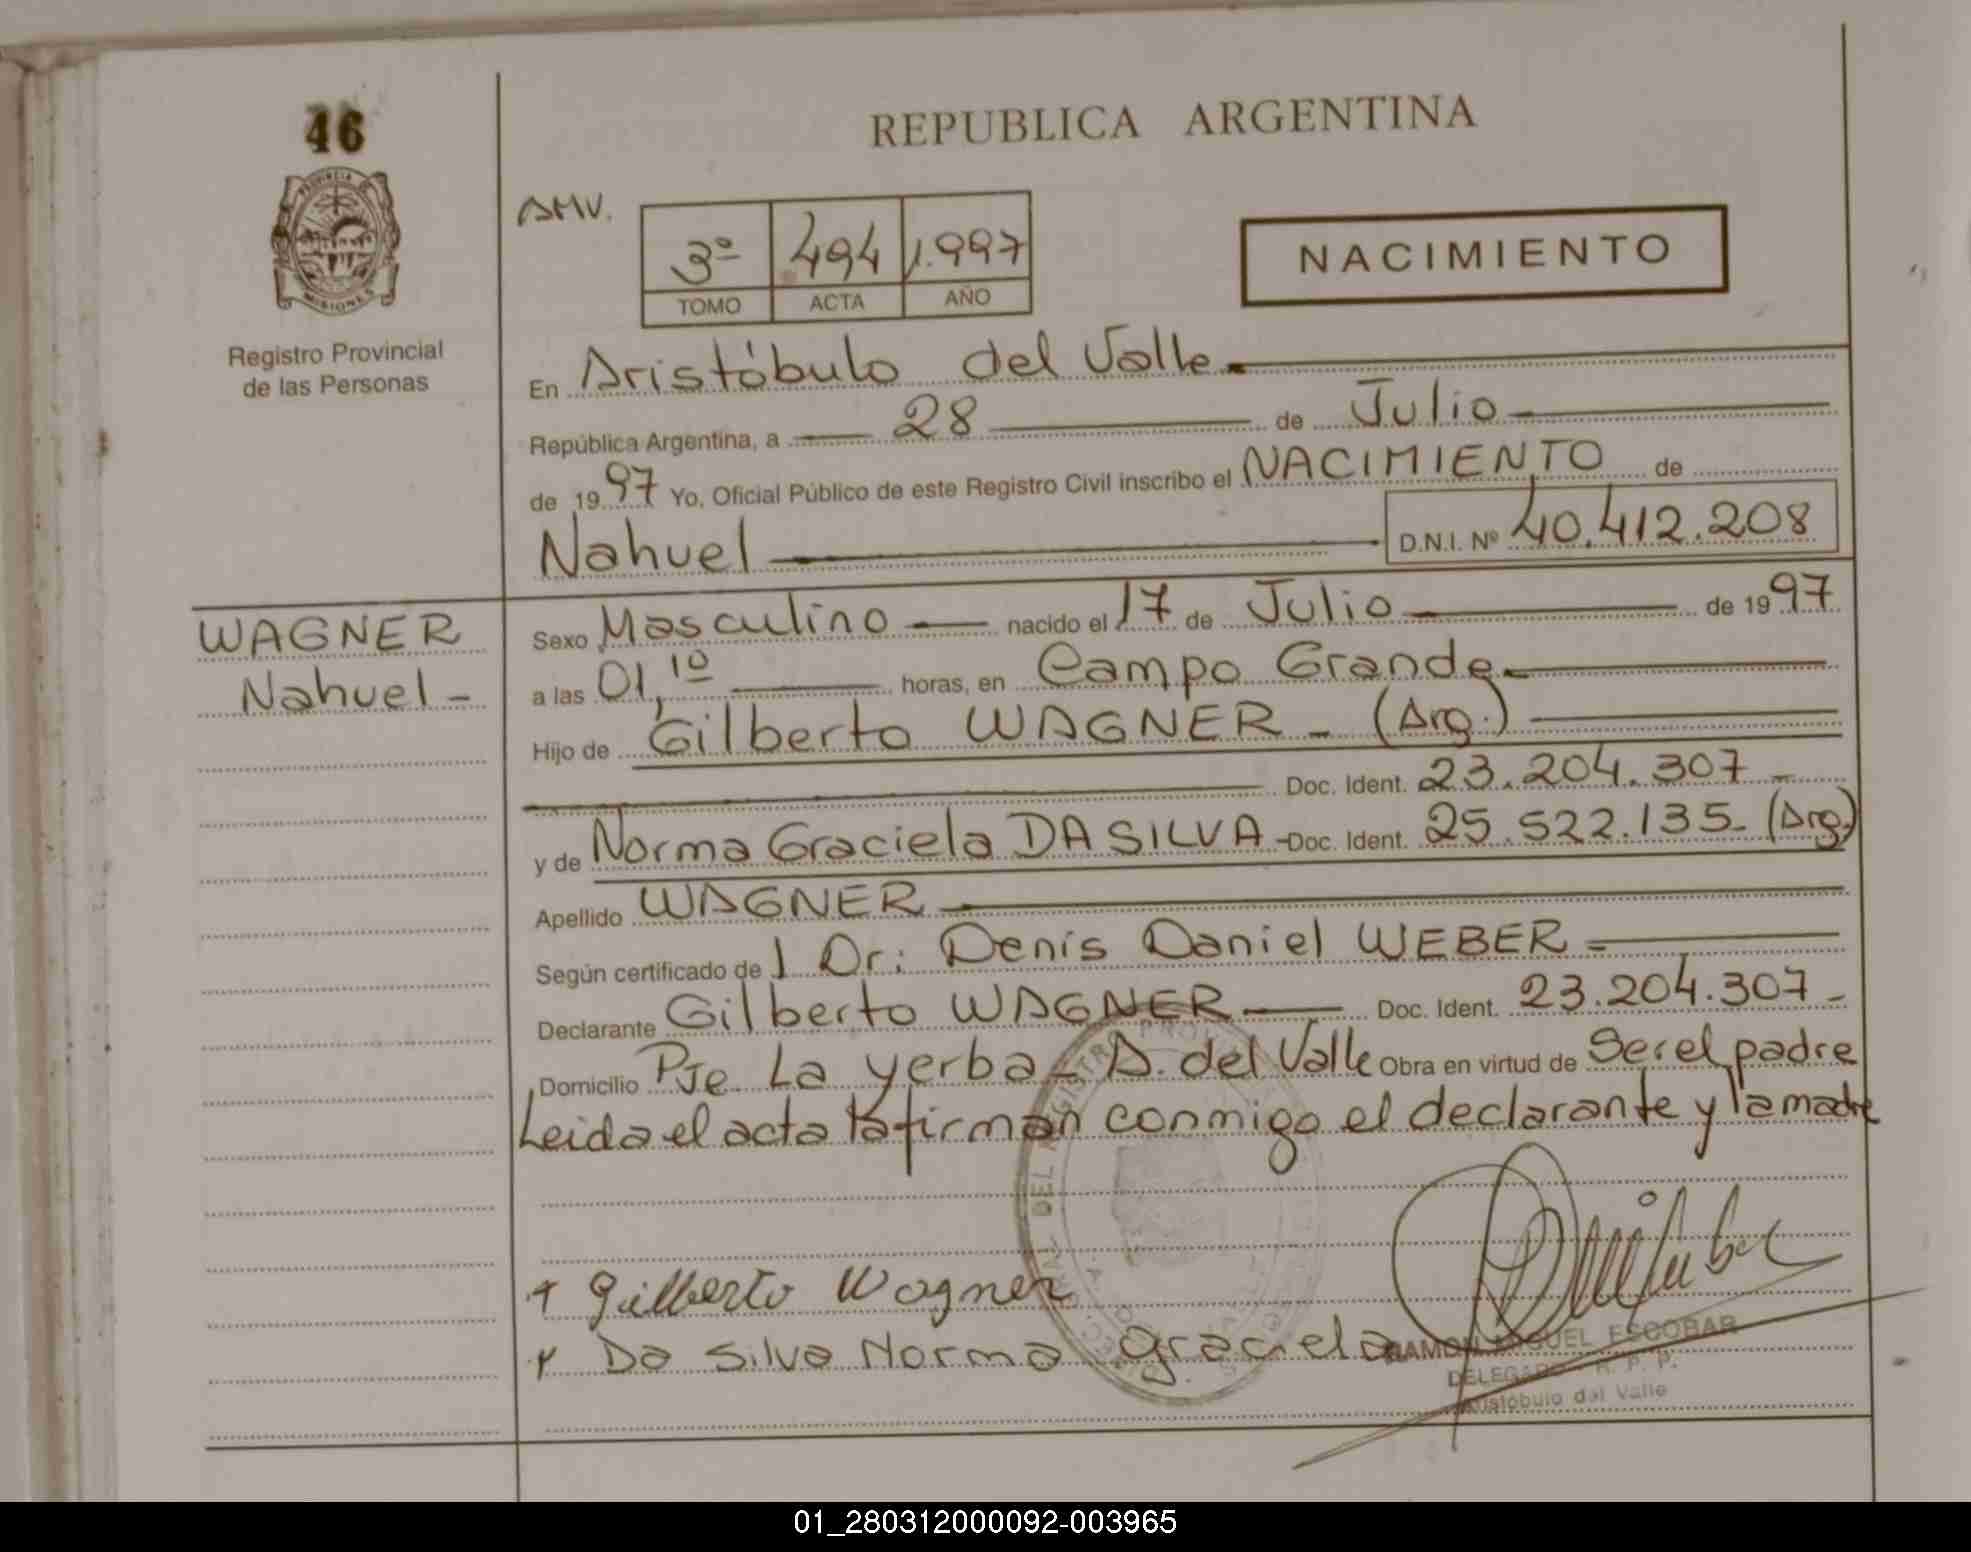 46
PROVINCIA DE
MISIONES
Registro Provincial
de las Personas
WAGNER
Nahuel -
REPUBLICA ARGENTINA
AMV.
3º 494 1.997
TOMO ACTA AÑO
NACIMIENTO
En Aristóbulo del Valle
República Argentina, a 28 de Julio
de 1997 Yo, Oficial Público de este Registro Civil inscribo el NACIMIENTO de
Nahuel D.N.I. Nº 40.412.208
Sexo Masculino nacido el 17 de Julio de 1997
a las 01,10 horas, en Campo Grande
Hijo de Gilberto WAGNER - (Arg.)
Doc. Ident. 23.204.307 -
y de Norma Graciela DA SILVA - Doc. Ident. 25.522.135 - (Arg.)
Apellido WAGNER
Según certificado de l Dr: Denis Daniel WEBER =
Declarante Gilberto WAGNER Doc. Ident. 23.204.307 -
Domicilio Pje La yerba - A. del Valle Obra en virtud de Ser el padre
Leida el acta la firman conmigo el declarante y la madre
+ Gilberto Wagner
+ Da Silva Norma graciela
RAMON MIGUEL ESCOBAR
DELEGADO R. P. P.
Aristóbulo del Valle
01_280312000092-003965